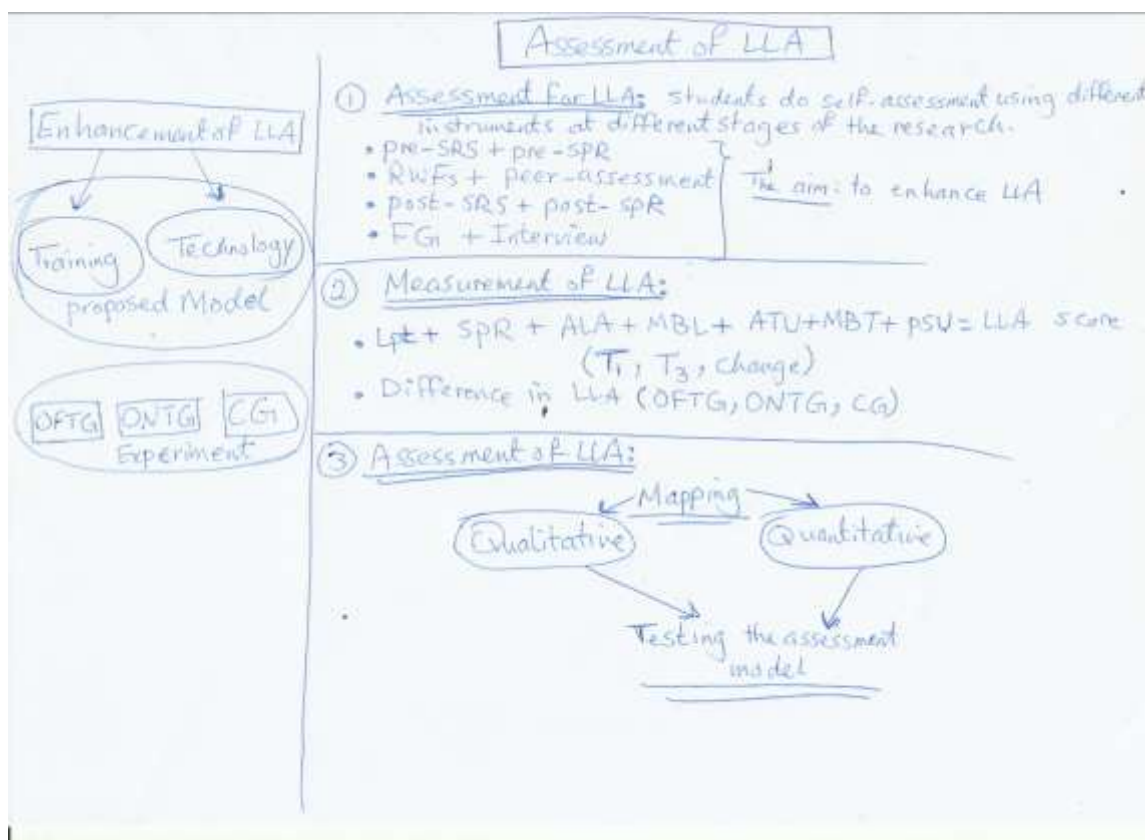 Assessment of LLA
Enhancement of LLA
Training
Technology
proposed Model
OFTG ONTG CG
Experiment
① Assessment for LLA: students do self-assessment using different
instruments at different stages of the research.
• pre-SRS + pre-SPR
• RWFs + peer-assessment
• post-SRS + post-SPR
• FG + Interview
The aim: to enhance LLA
② Measurement of LLA:
• Lpt + SPR + ALA + MBL + ATU + MBT + PSU = LLA score
(T1, T3, change)
• Difference in LLA (OFTG, ONTG, CG)
③ Assessment of LLA:
Mapping
Qualitative
Quantitative
Testing the assessment
model